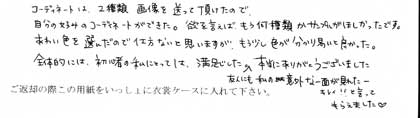 コーディネートは、2種類 画像を送って頂けたので、
自分の好みのコーディネートができた。欲を言えばもう何種類かサンプルがほしかったです。
あわい色を選んだので仕方ないと思いますが、もう少し色が分かり易いと良かった。
全体的には、初心者の私にとっては、満足でした。本当にありがとうございました
友人にも私の意外な一面が見れた
キレイ!!と言って
もらえました♡
ご返却の際この用紙をいっしょに衣裳ケースに入れて下さい。